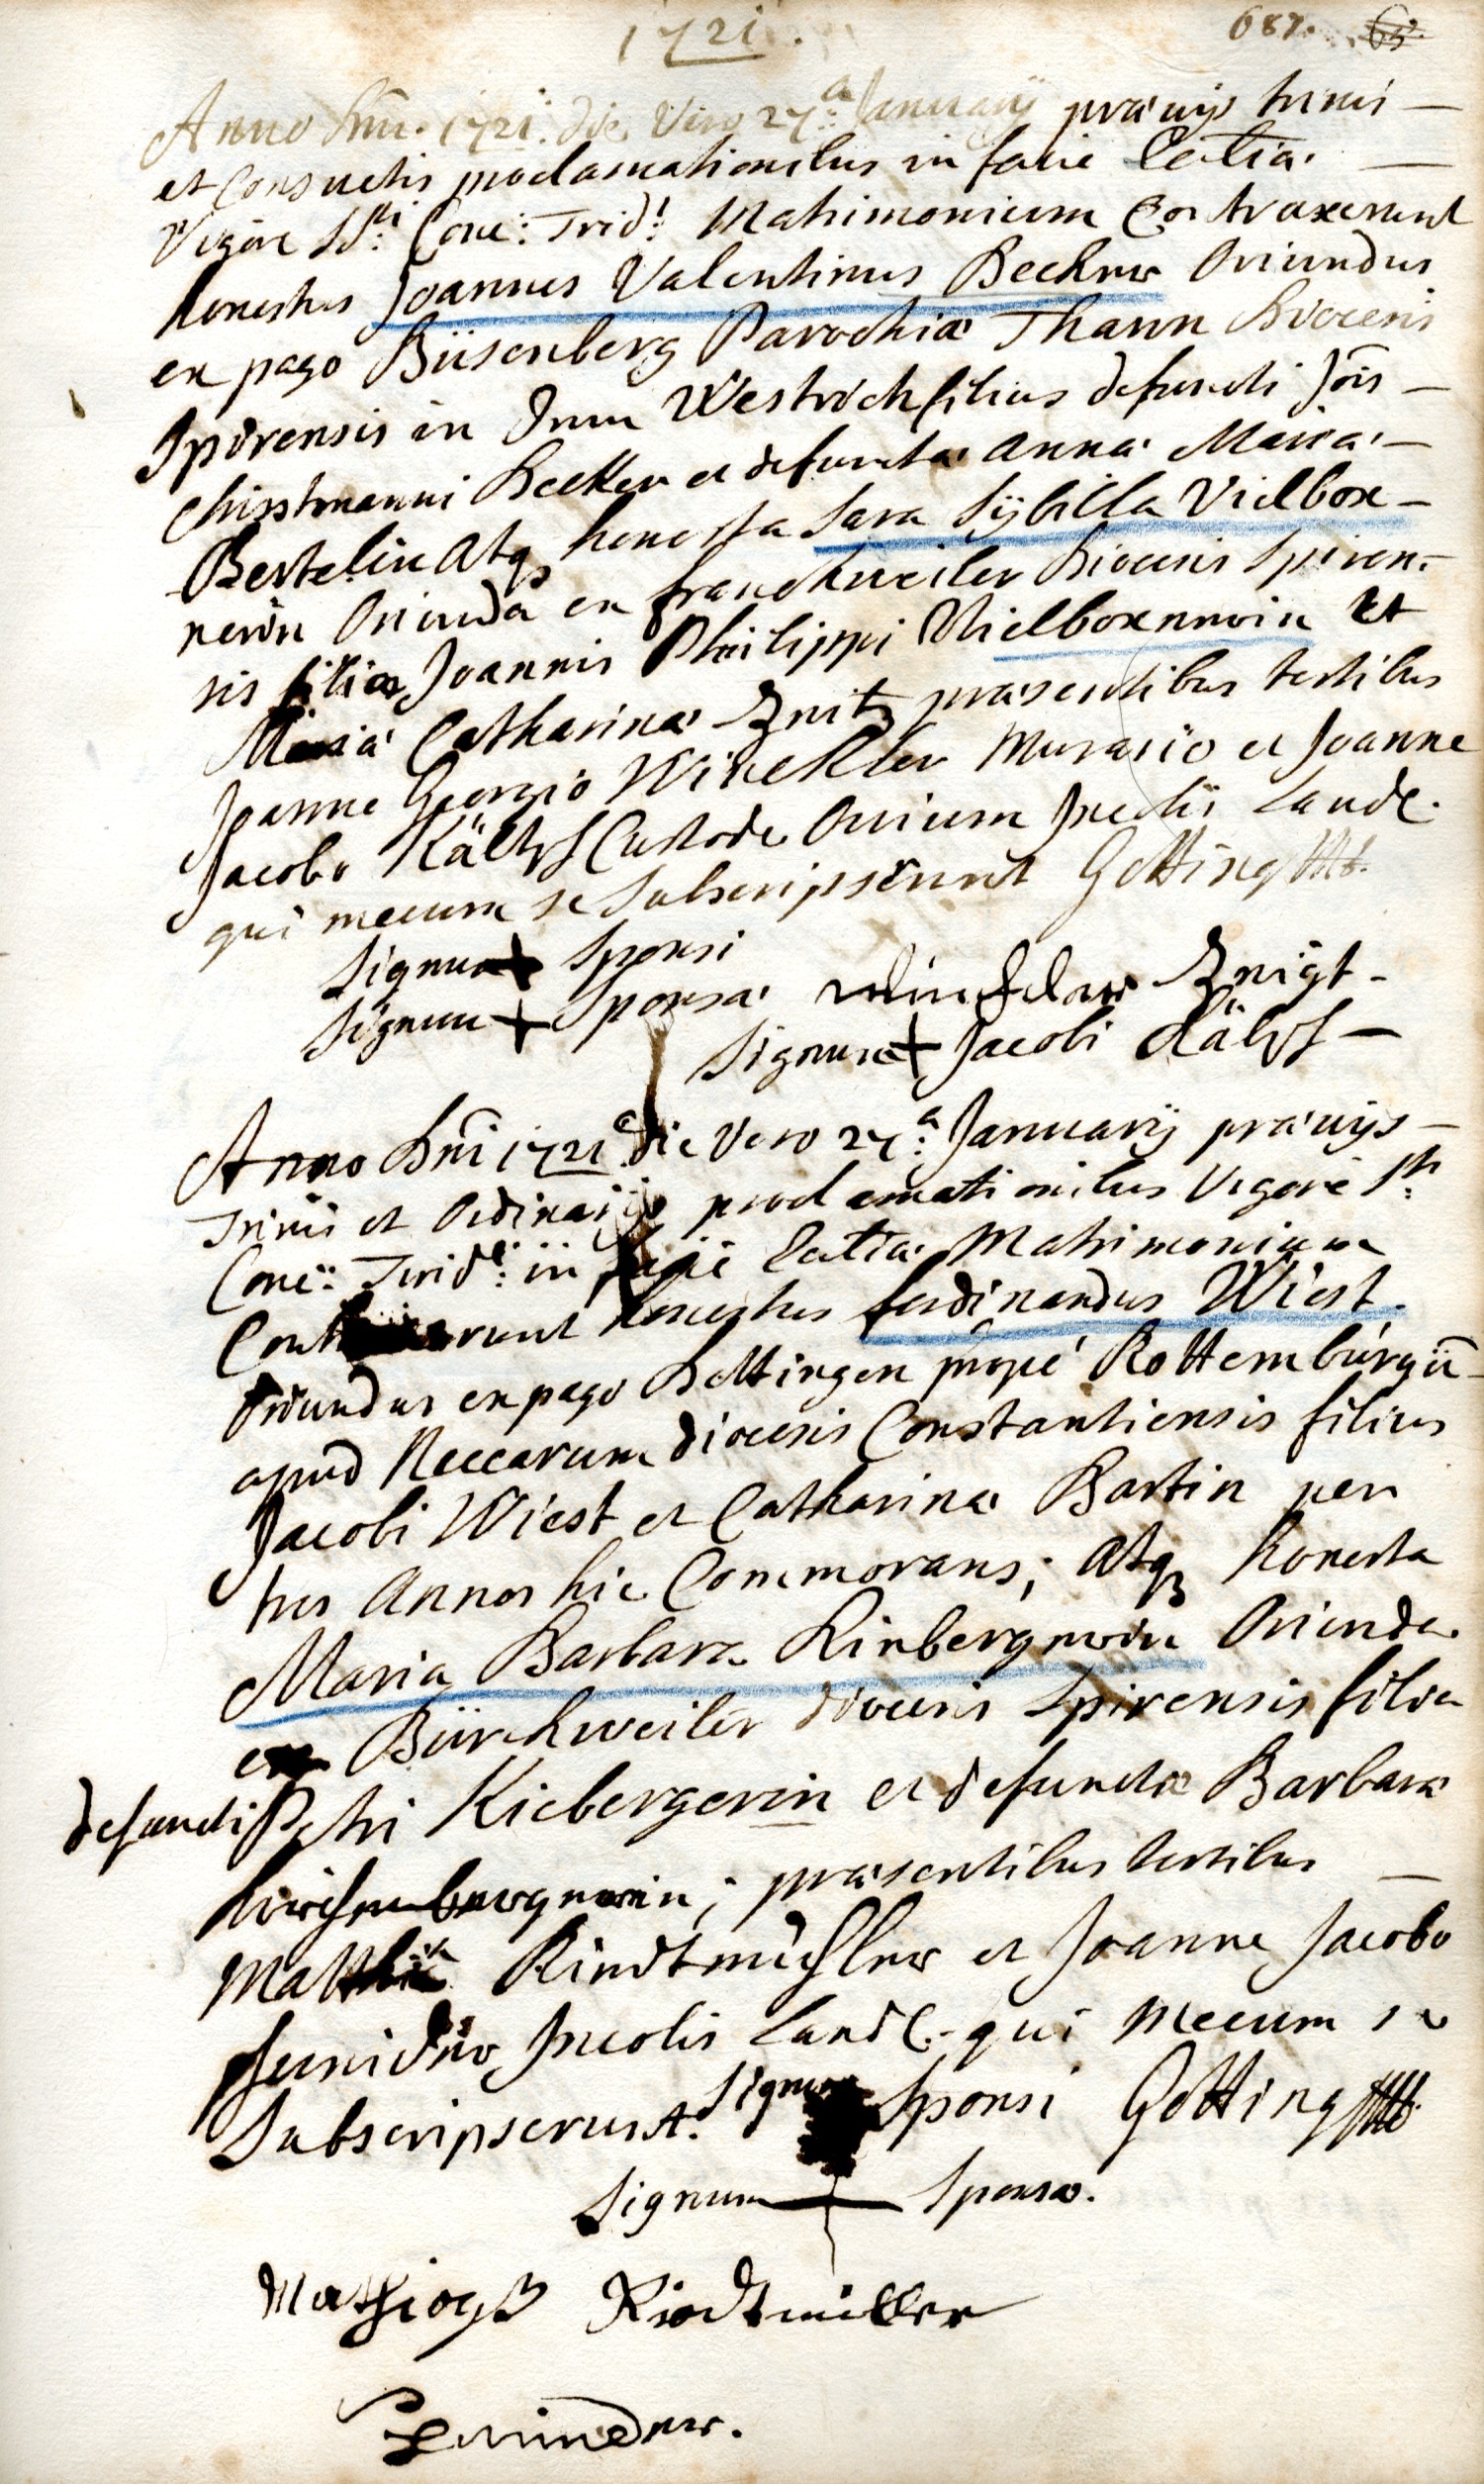 1721.
687. 65.
Anno Dni. 1721. die Vero 27a: Januarij præuijs trinis —
et Consuetis proclamationibus in facie Ecclia. —
Vigore SSti: Conc: Trid: Matrimonium Contraxerunt
honestus Joannes Valentinus Becker Oriundus
ex pago Büsenberg Parochiæ Thann Diocesis
Spirensis in dem Westrich filius defuncti Jois —
Christmanni Becker et defunctæ Annæ Mariæ —
Bertelin Atq honesta Sara Sÿbilla Vielbox-
nerin Oriunda ex franckweiler Diocesis Spiren-
sis filia Joannis Philippi Vielboxnnerin Et
Mariæ Catharinæ præsentibus testibus
Joanne Georgio Winckler Murario et Joanne
Jacobo Custode Ovium Incolis Landl.
qui mecum se Subscripserunt Götting
Signum + Sponsi
Signum + Sponsæ Winckler
Signum + Jacobi
Anno Dni 1721 die Vero 27a: Januarij præuijs —
Trinis et Ordinarijs proclamationibus Vigore Sti:
Conc: Trid: in facie Ecclia. Matrimonium
Contraxerunt honestus ferdinandus Wiest.
Oriundus ex pago Dettingen prope Rottemburgū
apud Neccarum diocesis Constantiensis filius
Jacobi Wiest et Catharinæ Bartin per
tres Annos hic Commorans; Atq honesta
Maria Barbara Kirbergnerin Oriunda
ex Bürckweiler diocesis Spirensis filia
defuncti Petri Kiebergerin et defunctæ Barbaræ
; præsentibus testibus —
Matthia Riedtmüller et Joanne Jacobo
Incolis Landl. qui mecum se
Subscripserunt. Signum Sponsi Götting
Signum + Sponsæ.
Mathiass Riedtmiller